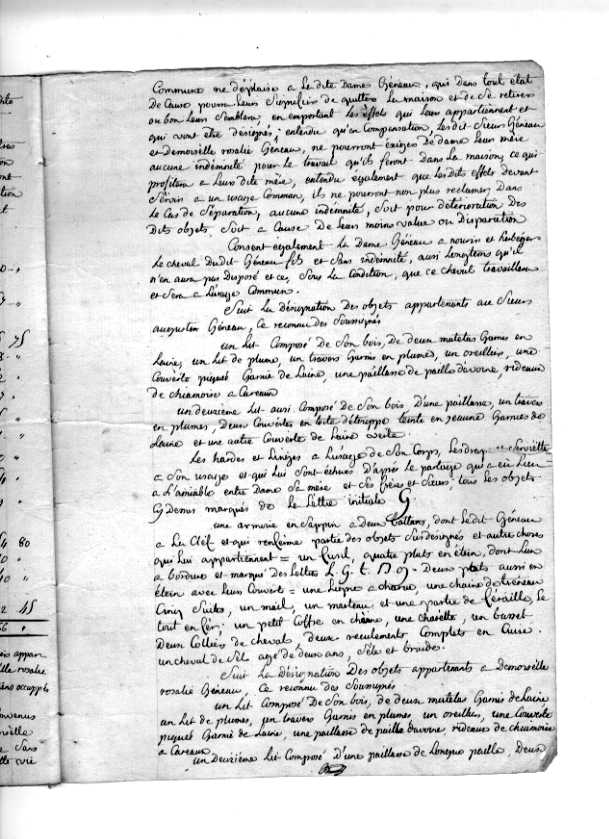 Commune ne déplaise a La dite Dame Géneau, qui dans tout état
De Cause pourra Leurs Signifier de quitter La maison et de Se retirer
ou bon Leurs Semblera, en emportant Les effets qui Leurs appartiennent et
qui vont être designés; entendu qu'en Compensation, Lesdit Sieurs Géneau
et Demoiselle rosalie Géneau, ne pourront exiger de dame Leurs mère
aucune indemnité pour Le travail qu'ils feront dans La maison, ce qui
profitera a Leurs dite mère, entendu egalement que Lesdits effets devant
Servir a un usage Commun, ils ne pourront non plus reclamer, Dans
Le Cas de Séparation, aucune indemnité, Soit pour détérioration Des
Dits objets, Soit a Cause De Leurs moins value ou Disparition
Consent également La Dame Géneau a nourir et heberger
Le cheval Dudit Géneau fils et Sans indemnité, aussi Longtems qu'il
n'en aura pas Disposé et ce, Sous La Condition, que ce cheval travaillera
et Sera a L'usage Commun.
Suit La désignation Des objets appartenants au Sieur
augustin Géneau, Ce reconnu des Soussignés
un Lit Composé de Son bois, De deux matelas Garnis en
Laine, un Lit de plume, un travers Garnis en plumes, un oreiller, une
Couverte piquet Garnie de Laine, une paillasse de paille davoine, rideaux
de chiamoise a Careaux
un deuxieme Lit aussi Composé De Son bois, D'une paillasse, un travers
en plumes, Deux Couvertes en toile détouppe teinte en jeaune Garnies de
Laine et une autre Couverte de Laine verte.
Les hardes et Linges a L'usage de Son Corps, Les draps et Serviette
a Son usage et qui Lui Sont échues D'après Le partage qui a eu Lieu
a L'amiable entre Dame Sa mère et Ses frères et Sœurs, tous Les objets
Cy Dessus marqués de La Lettre initiale G.
une armoire en Sappin a Deux Battans, dont Ledit Géneau
a La Clef et qui renferme partie des objets Susdesignés et autre choses
qui Lui appartiennent = un fusil, quatre plats en étein, dont L'un
a bordure et marqué Des Lettres L. G. t. D G. Deux plats aussi en
étein avec Leurs Couvert = une a charue, une chaine de
Cinq Suites, un mail, un marteau et une partie de féraille, Le
tout en fer; un petit Coffre en chêne, une charette, un
Deux Colliers de cheval, deux reculements Complets en Cuire.
un cheval de Sel agé de deux ans, Sêle et brides.
Suit La désignation Des objets appartenants a Demoiselle
rosalie Géneau, Ce reconnu des Soussignés
un Lit Composé De Son bois, de deux matelas Garnis de Laine
un Lit de plumes, un travers Garnis en plumes, un oreiller, une Couverte
piquet Garnie de Laine, une paillasse de paille davoine, rideaux de chiamoise
a Careaux
un Deuxième Lit Composé D'une paillasse de Longue paille, Deux
75
80
45